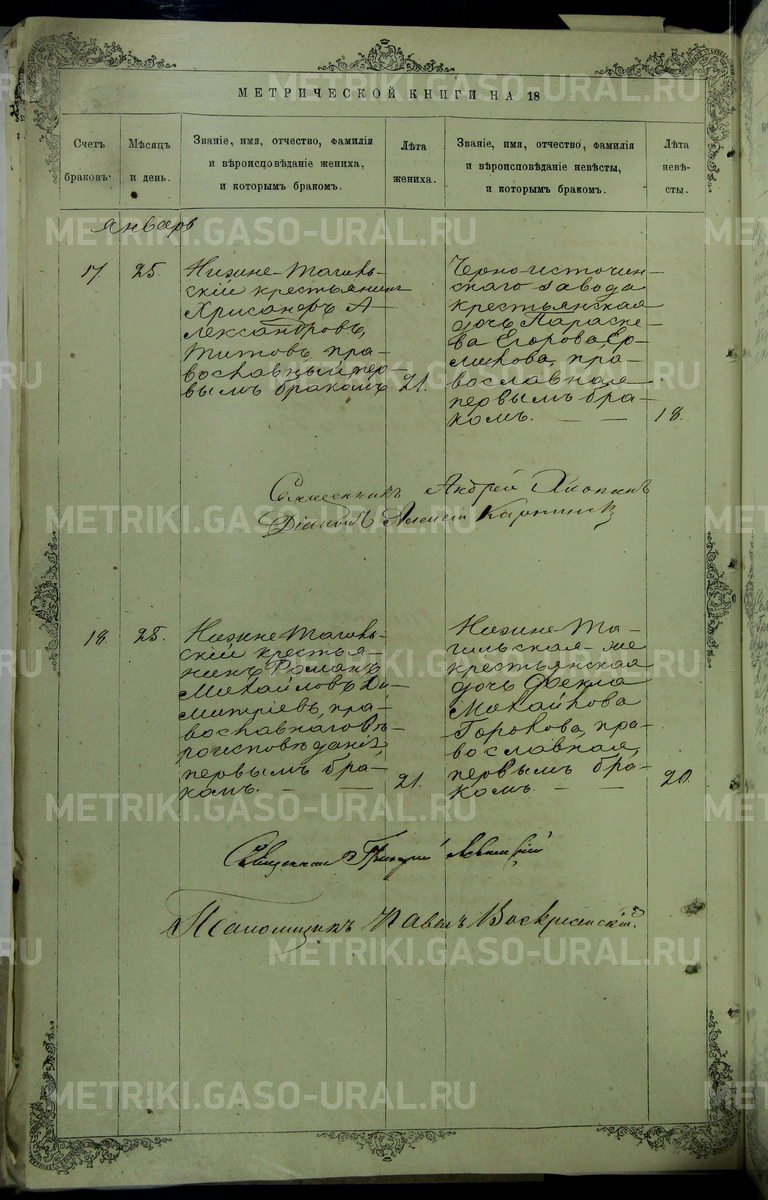 МЕТРИЧЕСКОЙ КНИГИ НА 18
Счетъ браковъ.
Мѣсяцъ и день.
Званіе, имя, отчество, фамилія
и вѣроисповѣданіе жениха,
и которымъ бракомъ.
Лѣта жениха.
Званіе, имя, отчество, фамилія
и вѣроисповѣданіе невѣсты,
и которымъ бракомъ.
Лѣта невѣ-
сты.
Январь
17
25.
Нижне-Тагиль-
скій крестьянинъ
Хрисанфъ А-
лександровъ
Титовъ, пра-
вославный, пер-
вымъ бракомъ
21.
Черноисточин-
скаго завода
крестьянская
дочь Параске-
ва Егорова Ер-
милова, пра-
вославная
первымъ бра-
комъ.
18.
Священникъ Андрей Хлопинъ
Діаконъ
18.
25.
Нижне-Тагиль-
скій крестья-
нинъ Романъ
Михайловъ Ди-
митріевъ, пра-
вославнаго вѣ-
роисповѣданія,
первымъ бра-
комъ.
21.
Нижне-Та-
гильская-же
крестьянская
дочь Фекла
Михайлова
Горохова, пра-
вославная,
первымъ бра-
комъ
20.
Священникъ
Псаломщикъ Павелъ Воскресенскій.
METRIKI.GASO-URAL.RU